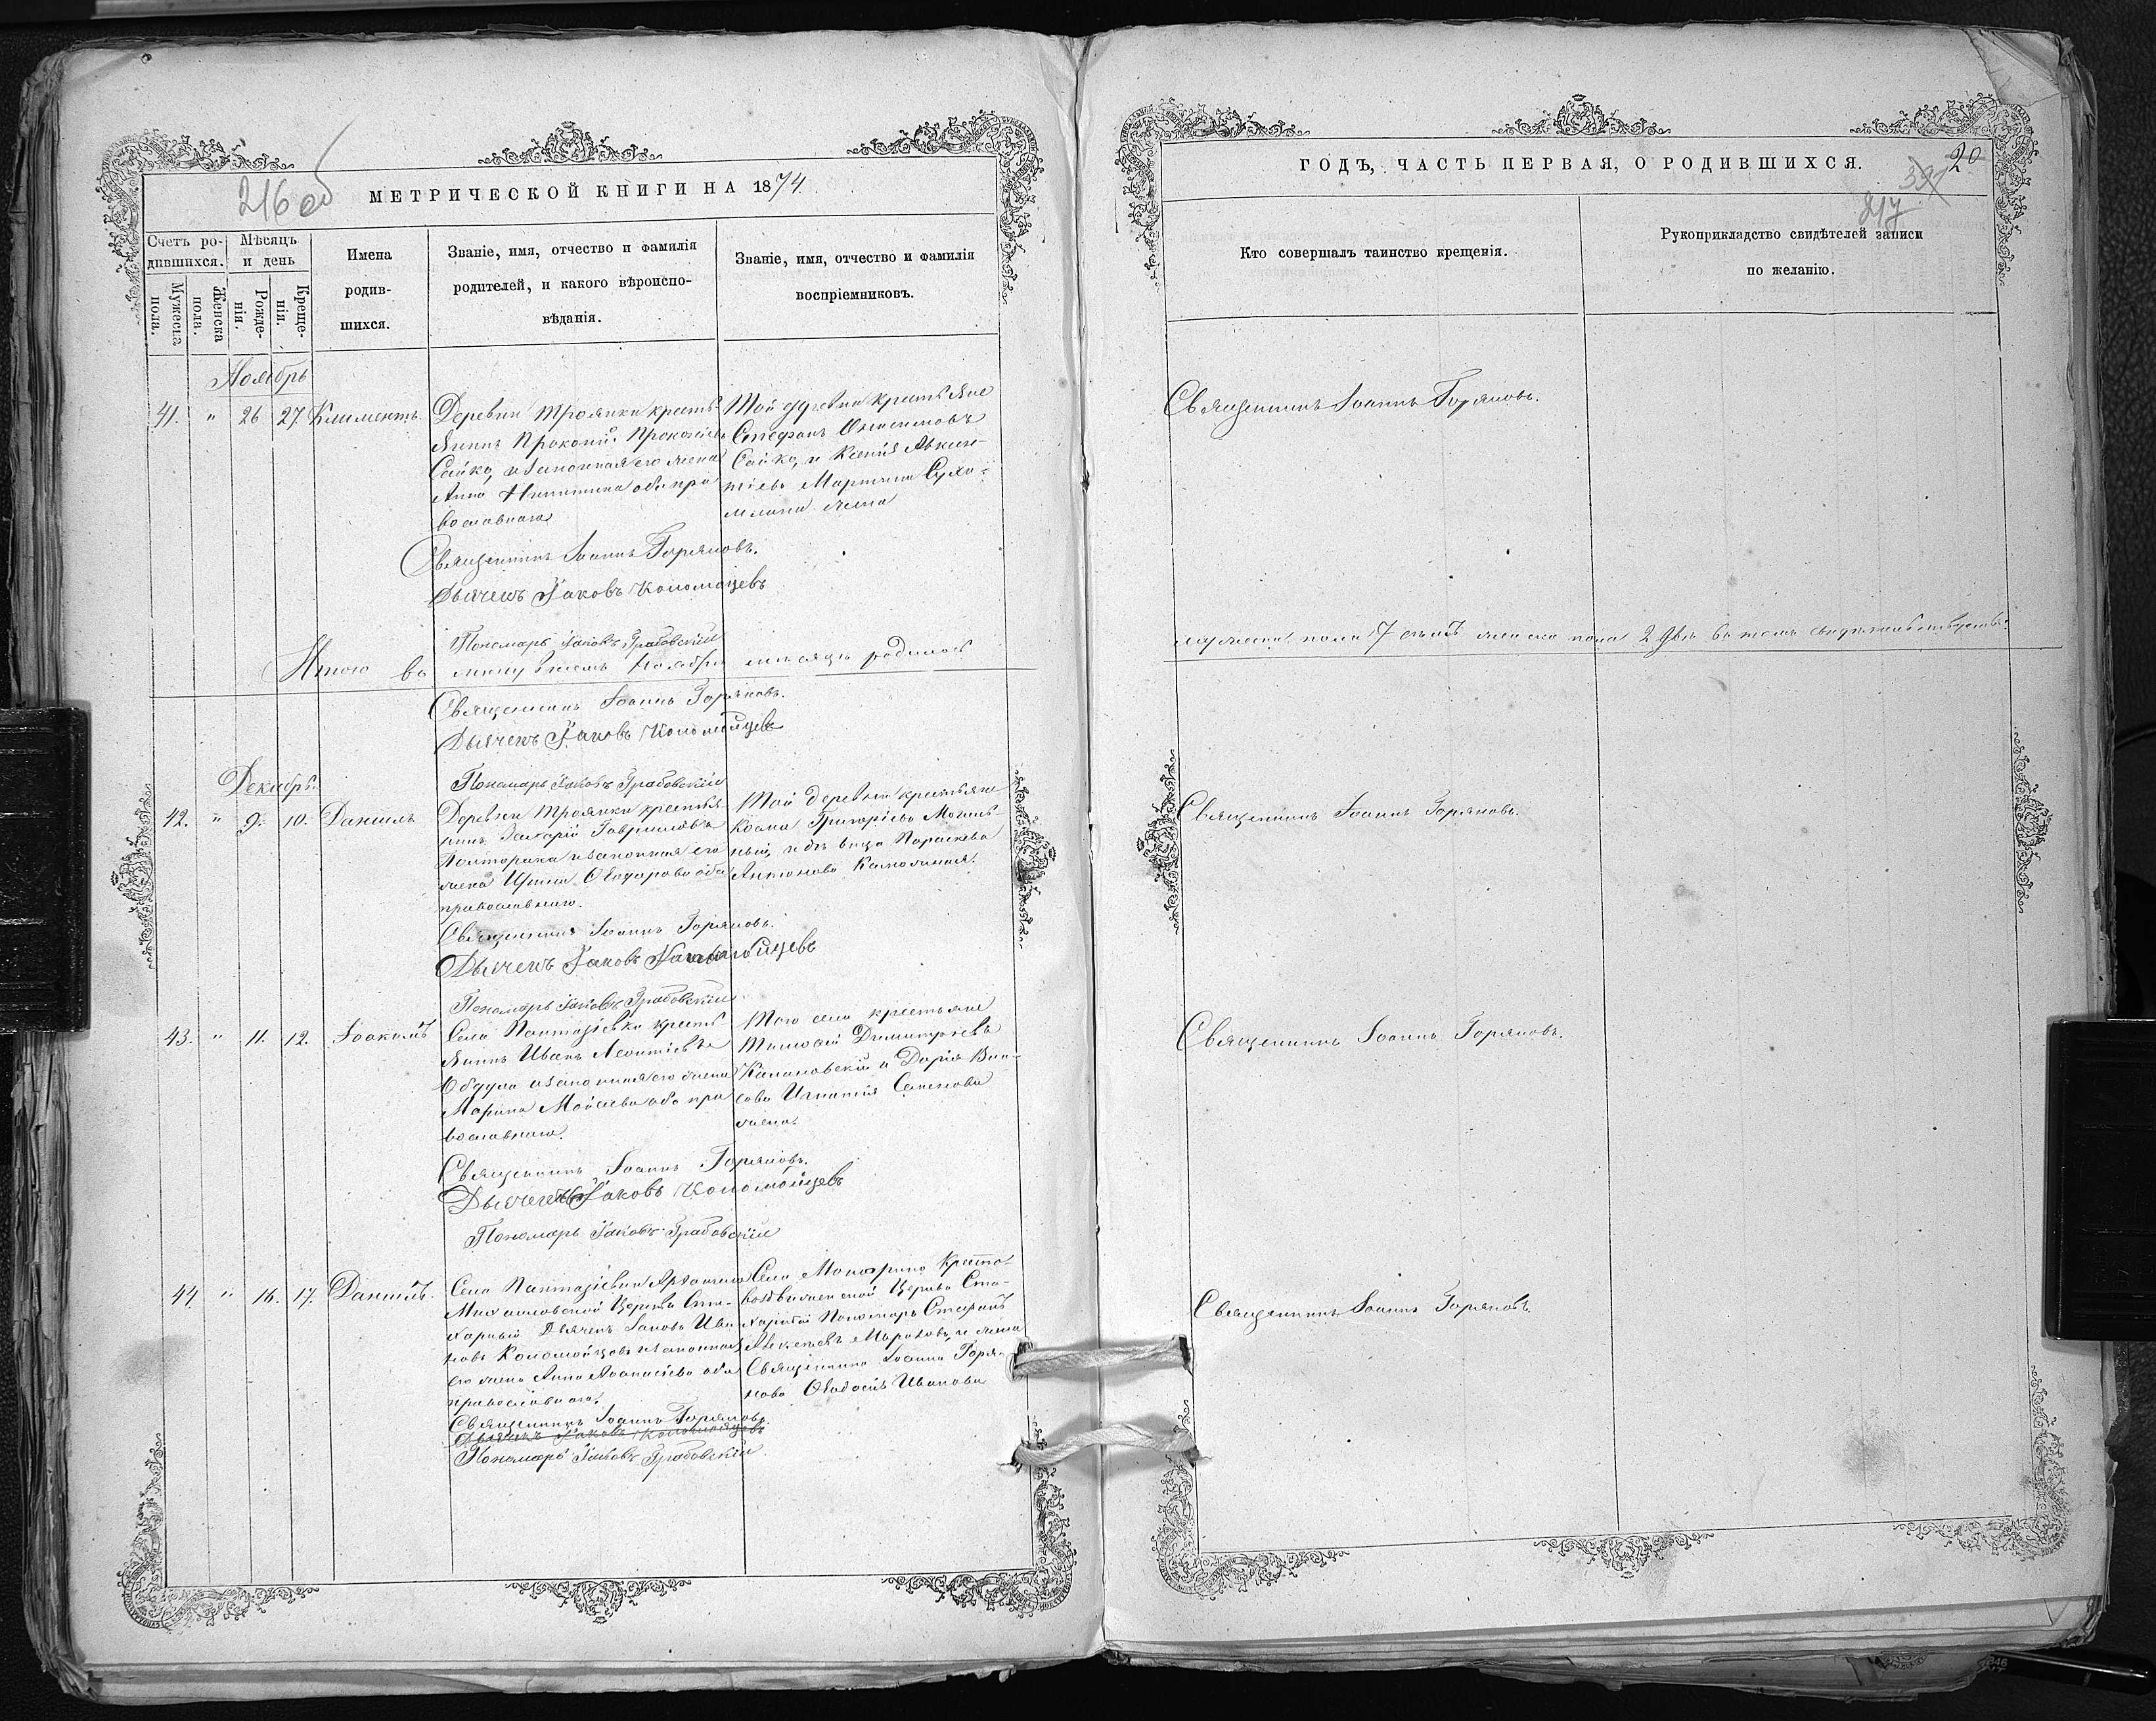 216 об
МЕТРИЧЕСКОЙ КНИГИ НА 1874
Счетъ ро-
дившихся.
Мѣсяцъ
и день
Мужеска
пола.
Женска
пола.
Рожде-
нія.
Креще-
нія.
Имена
родив-
шихся.
Званіе, имя, отчество и фамилія
родителей, и какого вѣроиспо-
вѣданія.
Званіе, имя, отчество и фамилія
воспріемниковъ.
Ноябрь
41. " 26 27. Климентъ.
Деревни Троянки кресть-
янинъ Прокопій Прокопіевъ
Сайко, и законная его жена
Анна Никитина оба пра
вославнаго
Той деревни крестьяне
Стефанъ Онисимовъ
Сайко, и Ксенія
Мартина Сухо-
млина жена
Священникъ Іоаннъ Горяновъ.
Дьячекъ Іаковъ Коломойцевъ
Пономарь Іаковъ Грабовскій
Итого въ Ноябрѣ мѣсяцѣ родилось
Священникъ Іоаннъ Горяновъ.
Дьячекъ Іаковъ Коломойцевъ
Пономарь Іаковъ Грабовскій
Декабрь.
42. " 9. 10. Даніилъ
Деревни Троянки крестья
нинъ Захарій Гавриловъ
Полторака и законная его
жена Ирина Ѳеодорова оба
православнаго.
Той деревни крестьяне
Козма Григорьевъ
и дѣвица Параскева
Антонова
Священникъ Іоаннъ Горяновъ.
Дьячекъ Іаковъ Коломойцевъ
Пономарь Іаковъ Грабовскій
43. " 11. 12. Іоакимъ
Села Пантазіевки кресть
янинъ Иванъ Леонтіевъ
и законная его жена
Марина Моисеева оба пра
вославнаго.
Того села крестьяне
Тимоѳей Димитріевъ
и Дарія Вла-
сова Игнатія Семенова
жена
Священникъ Іоаннъ Горяновъ.
Дьячекъ Іаковъ Коломойцевъ
Пономарь Іаковъ Грабовскій
44 " 16. 17. Даніилъ.
Села Пантазіевки Архангело
Михаиловской Церкви
Дьячекъ Іаковъ Ива
новъ Коломойцевъ и законная
его жена Анна Аѳанасіева оба
православнаго.
Села Кресто-
воздвиженской Церкви
Пономарь Стефанъ
и жена
Священника Іоанна Горя-
нова Ѳеодосія Иванова
Священникъ Іоаннъ Горяновъ.
Дьячекъ Іаковъ Коломойцевъ
Пономарь Іаковъ Грабовскій
ГОДЪ, ЧАСТЬ ПЕРВАЯ, О РОДИВШИХСЯ.
20
391
217
Кто совершалъ таинство крещенія.
Рукоприкладство свидѣтелей записи
по желанію.
Священникъ Іоаннъ Горяновъ.
мужеска пола 7 семь женска пола 2 два въ томъ свидѣтельствуемъ:
Священникъ Іоаннъ Горяновъ.
Священникъ Іоаннъ Горяновъ.
Священникъ Іоаннъ Горяновъ.